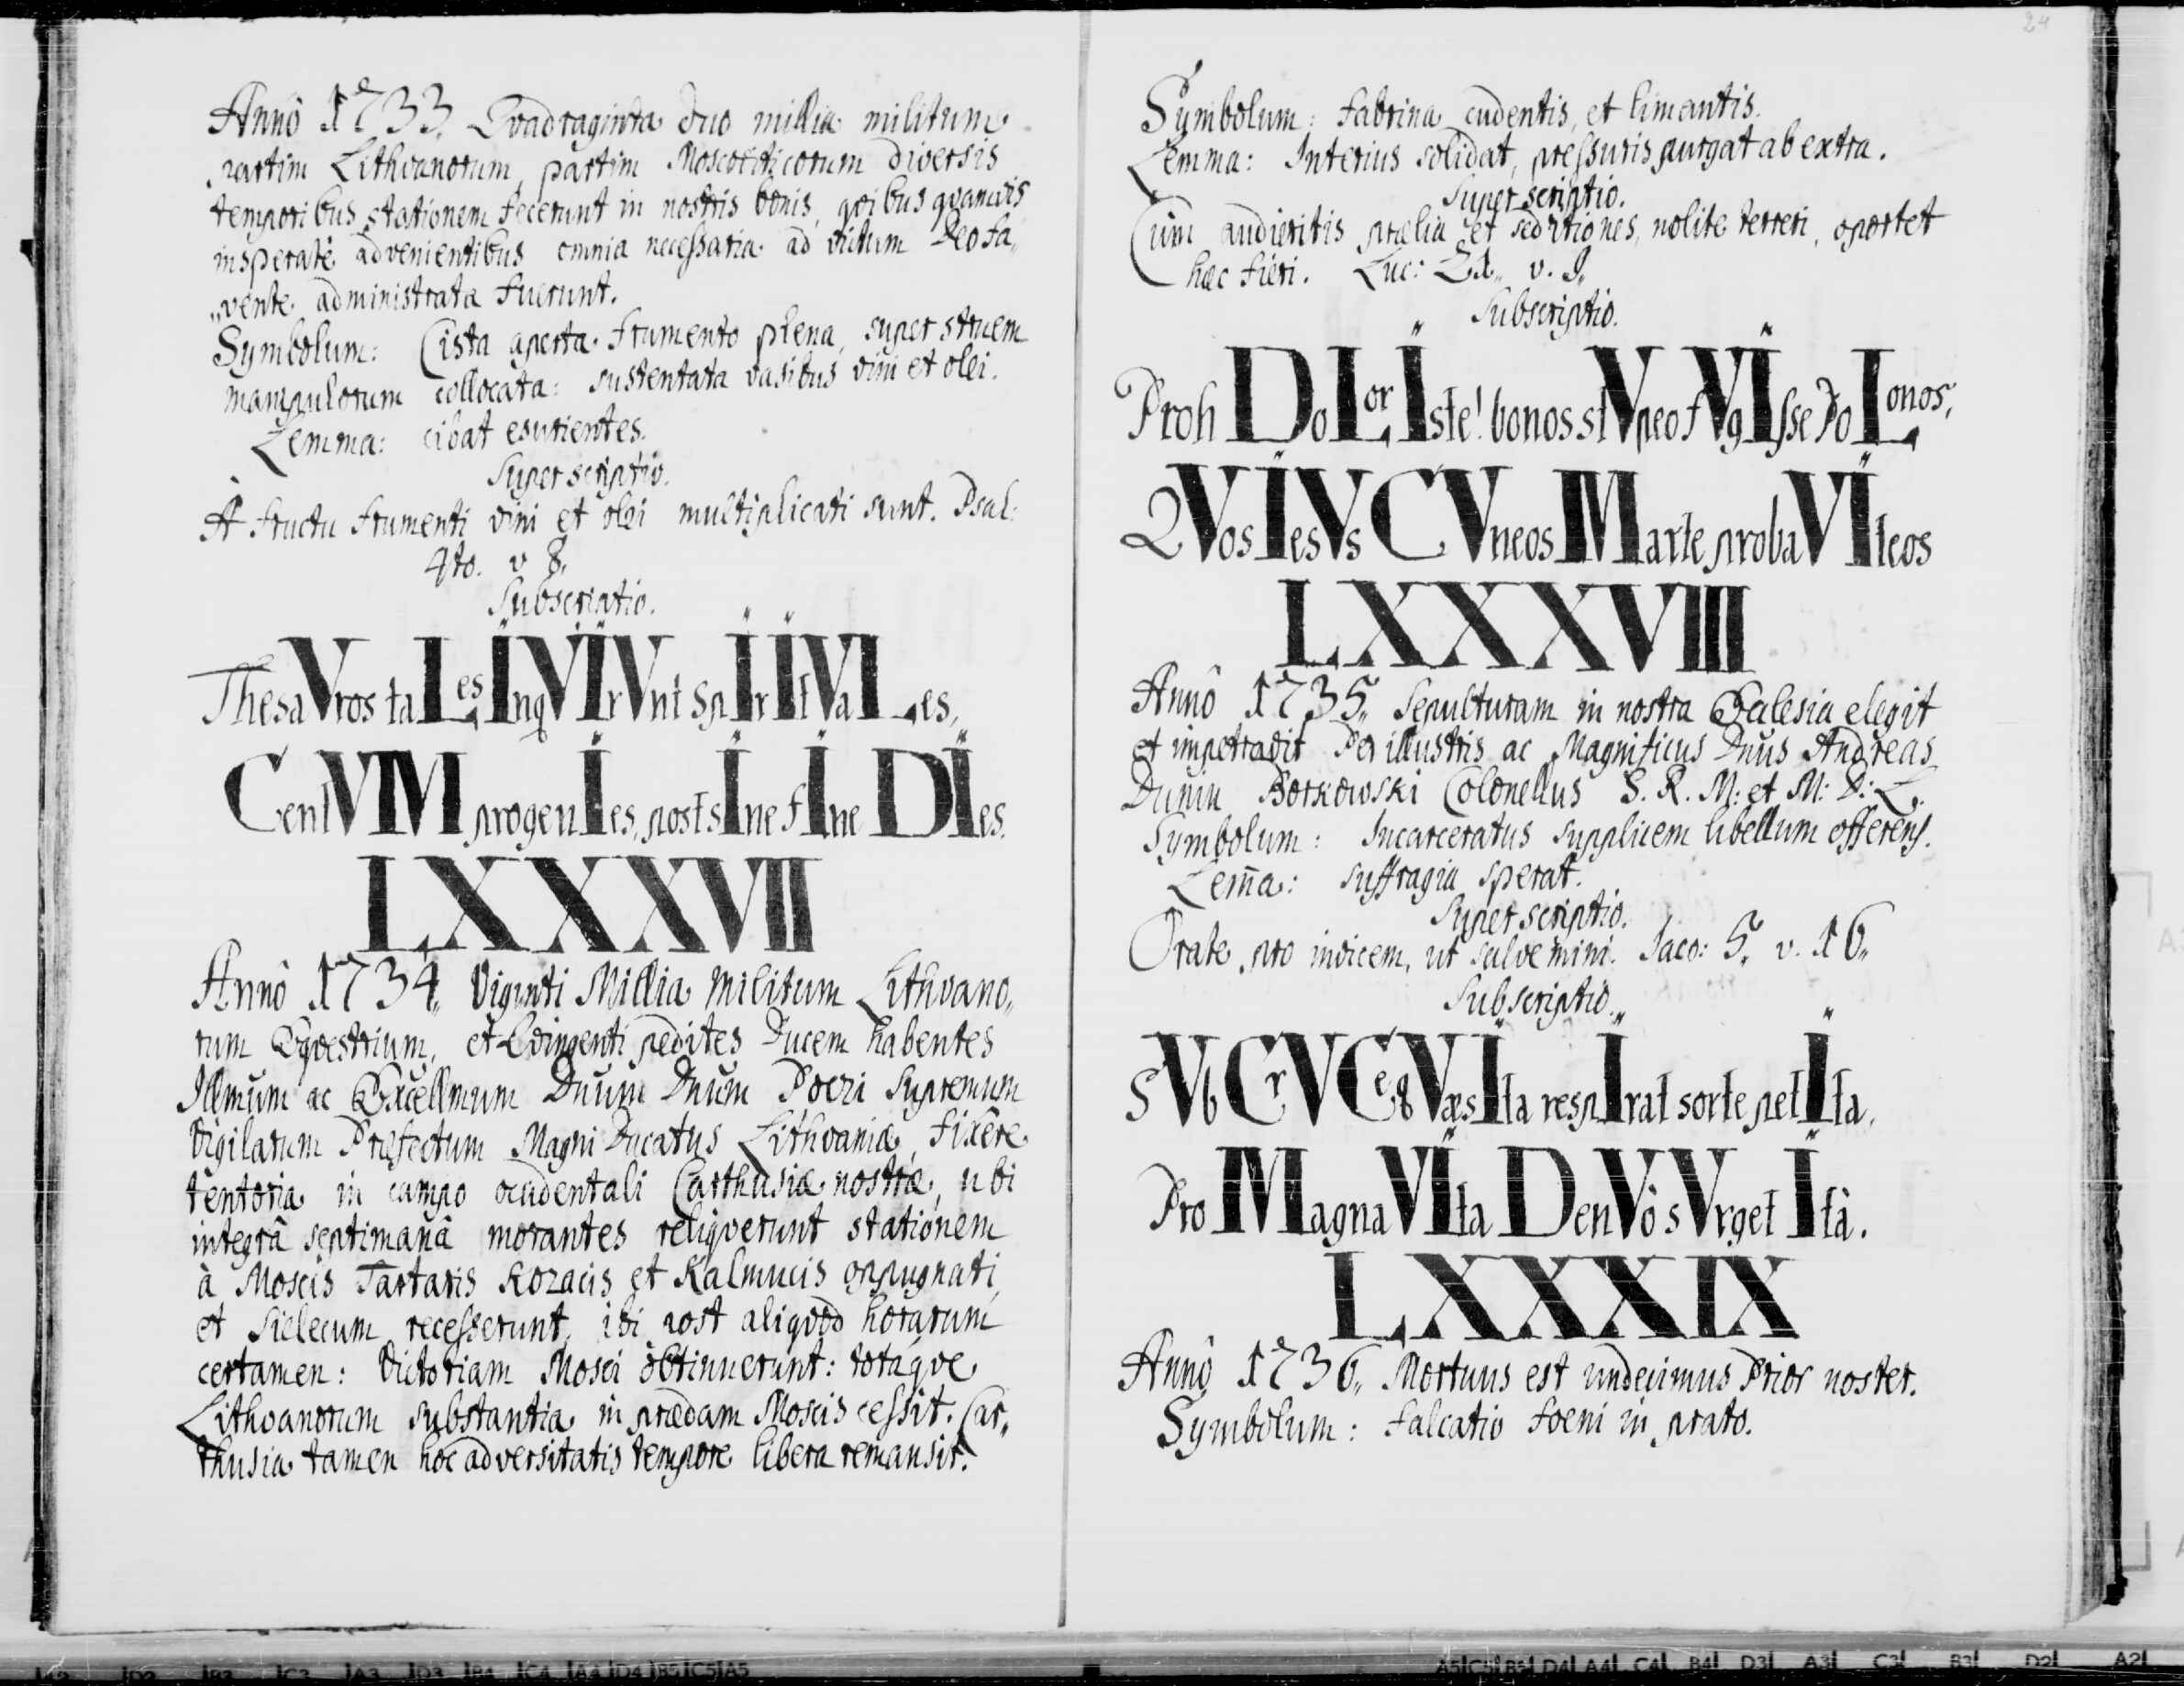 Annô 1733. Qvadraginta duo millia militum
partim Lithvanorum, partim Moscoviticorum diversis
temporibus stationem fecerunt in nostris bonis, qvibus qvamvis
insperatè advenientibus omnia necessaria ad victum Deo fa„
„vente administrata fuerunt.
Symbolum: Cista aperta frumento plena, super struem
manipulorum collocata: sustentata vasibus vini et olei.
Lemma: cibat esurientes.
Superscriptio.
A fructu frumenti vini et olei multiplicati sunt. Psal:
4to. v 8.
Subscriptio.
ThesaVros taLes InqVIrVnt SpIrItVaLes,
CentVM progenIes, post sIne fIne DIes.
LXXXVII
Annô 1734„ Viginti Millia Militum Lithvano„
rum Eqvestrium, et qvingenti pedites Ducem habentes
Illmum ac Excellmum Dnum Dnum Pociej Supremum
Vigilarum Præfectum Magni Ducatus Lithvaniæ, fixêre
tentoria in campo occidentali Carthusiæ nostræ, ubi
integrâ septimanâ morantes reliqverunt stationem
à Moscis Tartaris Kozacis et Kalmucis oppugnati,
et Sielecum recesserunt, ibi post aliqvod horarum
certamen: Victoriam Mosci obtinuerunt: totaqve
Lithvanorum substantia in prædam Moscis cessit. Car„
thusia tamen hoc adversitatis tempore libera remansit.
24
Symbolum: Fabrina cudentis, et limantis.
Lemma: Interius solidat, pressuris purgat ab extra.
Superscriptio.
Cum audieritis prælia et seditiones, nolite terreri, oportet
hæc fieri. Luc: 21„ v. 9„
Subscriptio.
Proh DoLor Iste! bonos stVpeo fVgIsse PoLonos,
QVos IesVs CVneos Marte probaVIt eos
LXXXVIII
Annô 1735„ Sepulturam in nostra Ecclesia elegit
et impetravit Perillustris ac Magnificus Dnus Andreas
Dunin Borkowski Colonellus S. R. M: et M: D: L:
Symbolum: Incarceratus supplicem libellum offerens.
Lem̄a: suffragia sperat.
Superscriptio.
Orate pro invicem, ut salvemini. Jaco: 5„ v. 16„
Subscriptio.
SVb CrVCe qVæsIta respIrat sorte petIta,
Pro Magna VIta DenVô sVrget Itâ.
LXXXIX
Annô 1736„ Mortuus est undecimus Prior noster.
Symbolum: Falcatio foeni in prato.